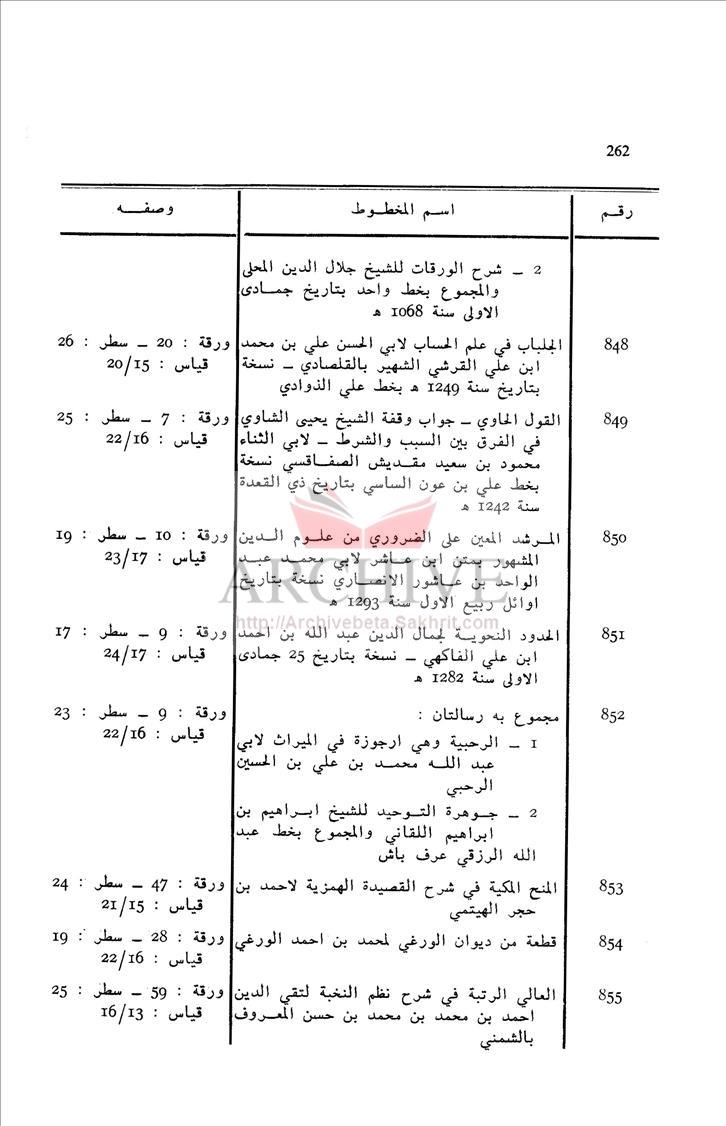 262
رقم اسم المخطوط وصفه
2 ــ شرح الورقات للشيخ جلال الدين المحلى
والمجموع بخط واحد بتاريخ جمادى
الاولى سنة 1068 هـ
848 الجلباب في علم الحساب لابي الحسن علي بن محمد ورقة : 20 ــ سطر : 26
ابن علي القرشي الشهير بالقلصادي ــ نسخة قياس : 20/15
بتاريخ سنة 1249 هـ بخط علي الذوادي
849 القول الحاوي ــ جواب وقفة الشيخ يحيى الشاوي ورقة : 7 ــ سطر : 25
في الفرق بين السبب والشرط ــ لابي الثناء قياس : 22/16
محمود بن سعيد مقديش الصفاقسي نسخة
بخط علي بن عون الساسي بتاريخ ذي القعدة
سنة 1242 هـ
850 المرشد المعين على الضروري من علوم الدين ورقة : 10 ــ سطر : 19
المشهور بمتن ابن عاشر لابي محمد عبد قياس : 23/17
الواحد بن عاشور الانصاري نسخة بتاريخ
اوائل ربيع الاول سنة 1293 هـ
ARCHIVE
http://Archivebeta.Sakhrit.com
851 الحدود النحوية لجمال الدين عبد الله بن احمد ورقة : 9 ــ سطر : 17
ابن علي الفاكهي ــ نسخة بتاريخ 25 جمادى قياس : 24/17
الاولى سنة 1282 هـ
852 مجموع به رسالتان : ورقة : 9 ــ سطر : 23
قياس : 22/16
1 ــ الرحبية وهي ارجوزة في الميراث لابي
عبد الله محمد بن علي بن الحسين
الرحبي
2 ــ جوهرة التوحيد للشيخ ابراهيم بن
ابراهيم اللقاني والمجموع بخط عبد
الله الرزقي عرف باش
853 المنح المكية في شرح القصيدة الهمزية لاحمد بن ورقة : 47 ــ سطر : 24
حجر الهيتمي قياس : 21/15
854 قطعة من ديوان الورغي لمحمد بن احمد الورغي ورقة : 28 ــ سطر : 19
قياس : 22/16
855 العالي الرتبة في شرح نظم النخبة لتقي الدين ورقة : 59 ــ سطر : 25
احمد بن محمد بن محمد بن حسن المعروف قياس : 16/13
بالشمني